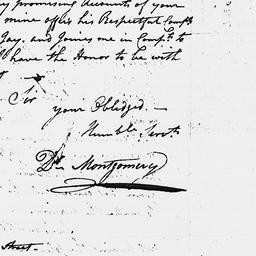 promising Accounts of your
mine offers his Respectful Compts
Jay. and Joines me in Compts. to
have the Honor to be with
Sir
your Obliged. —
Humble Servt.
Dn Montgomery
Street.